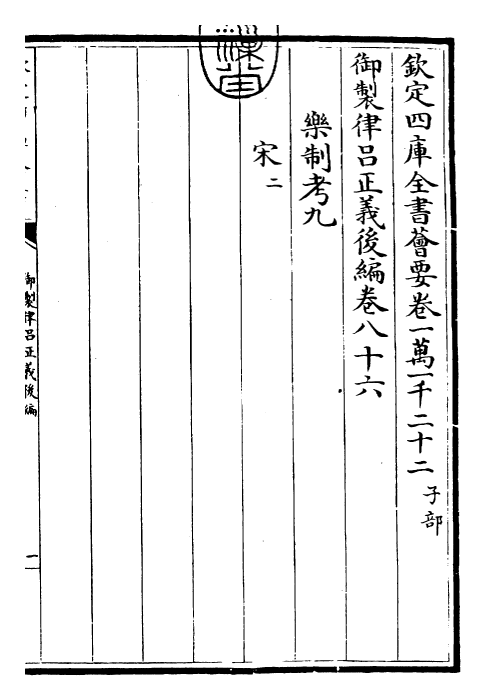 欽定四庫全書薈要卷一萬一千二十二 子部
御製律呂正義後編卷八十六
樂制考九
宋二
御製律呂正義後編
一